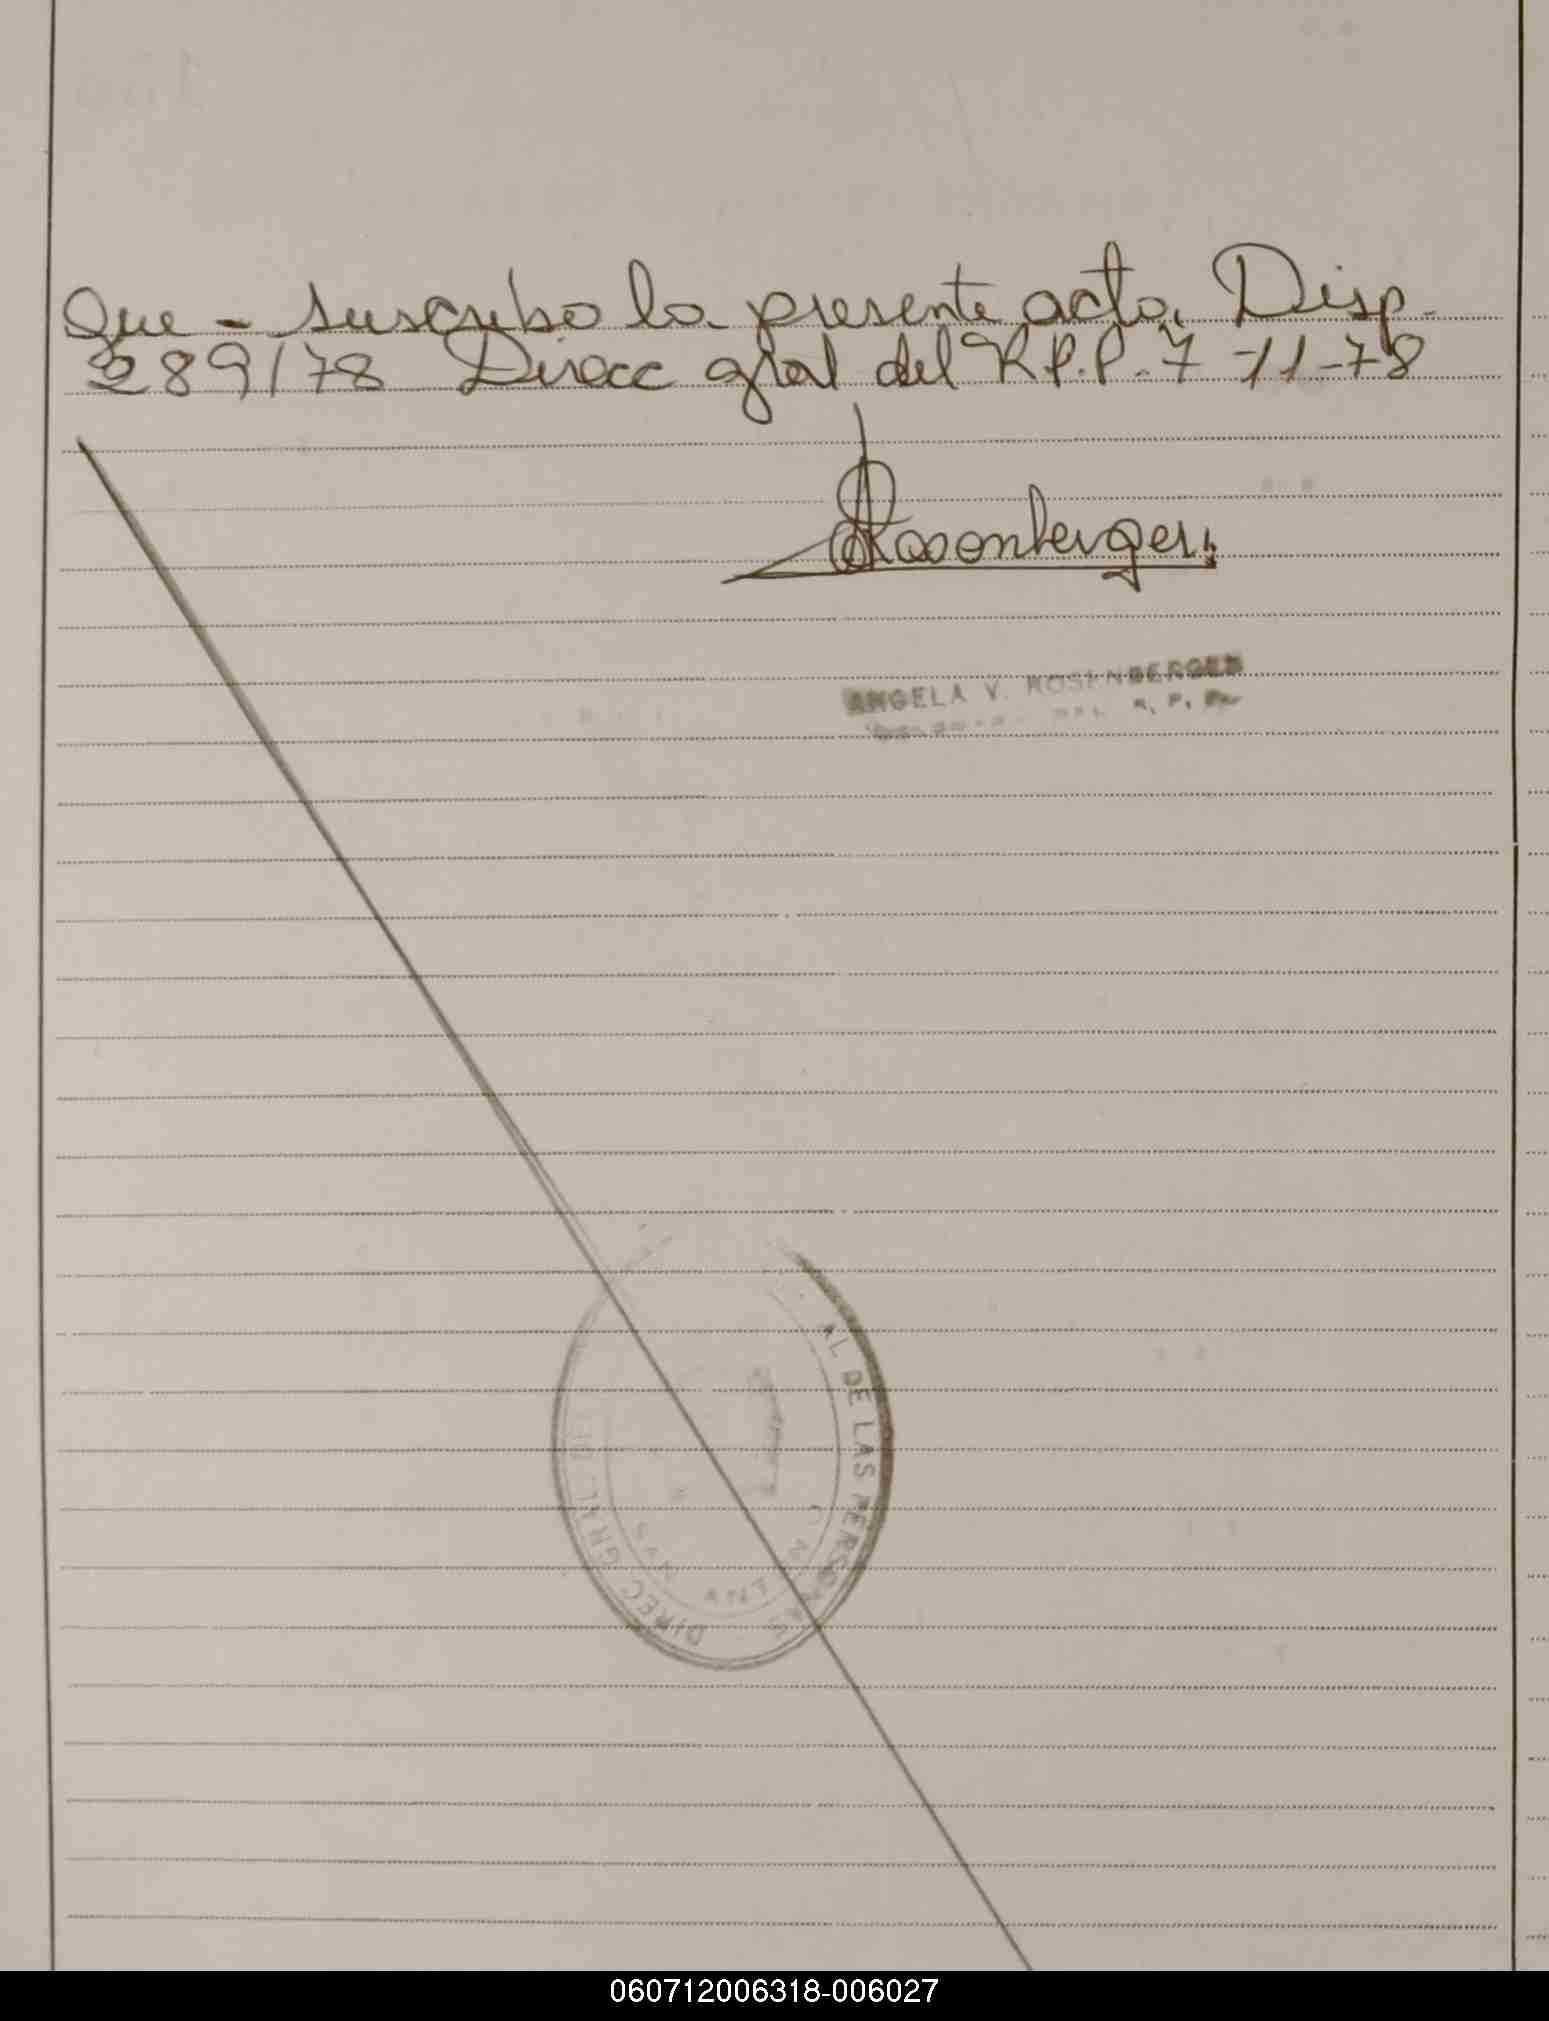 Que - suscribo la presente acta. Disp.
289/78 Direcc gral del R.P.P. 7-11-78
Rosenberger
ANGELA V. ROSENBERGER
R. P. P.
DIREC GRAL DEL
AL DE LAS PERSONAS
060712006318-006027